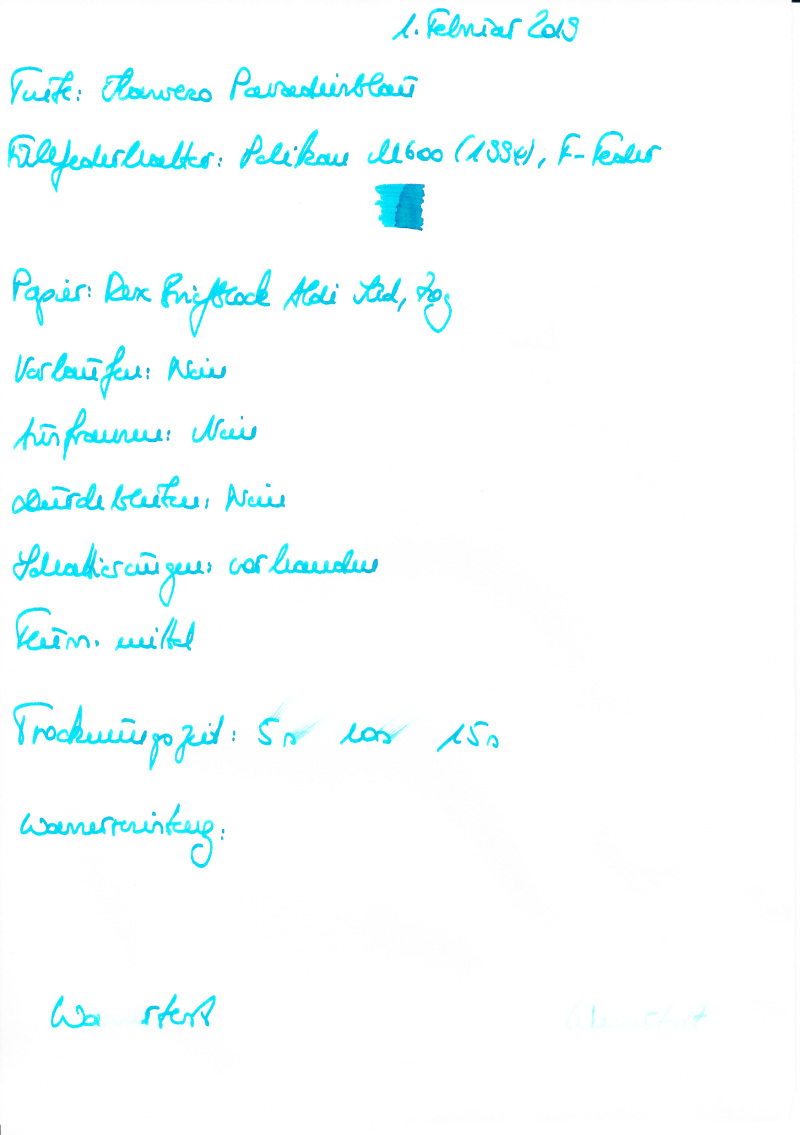 1. Februar 2019
Tinte: Hawesco Paradiesblau
Füllfederhalter: Pelikan M600 (1994), F-Feder
Papier: Rex Briefblock Aldi Süd, 70g
Verlaufen: Nein
Ausfransen: Nein
Durchbluten: Nein
Schattierungen: vorhanden
Sheen: mittel
Trocknungszeit: 5s 10s 15s
Wasserresistenz:
Wassertest
Wassertest